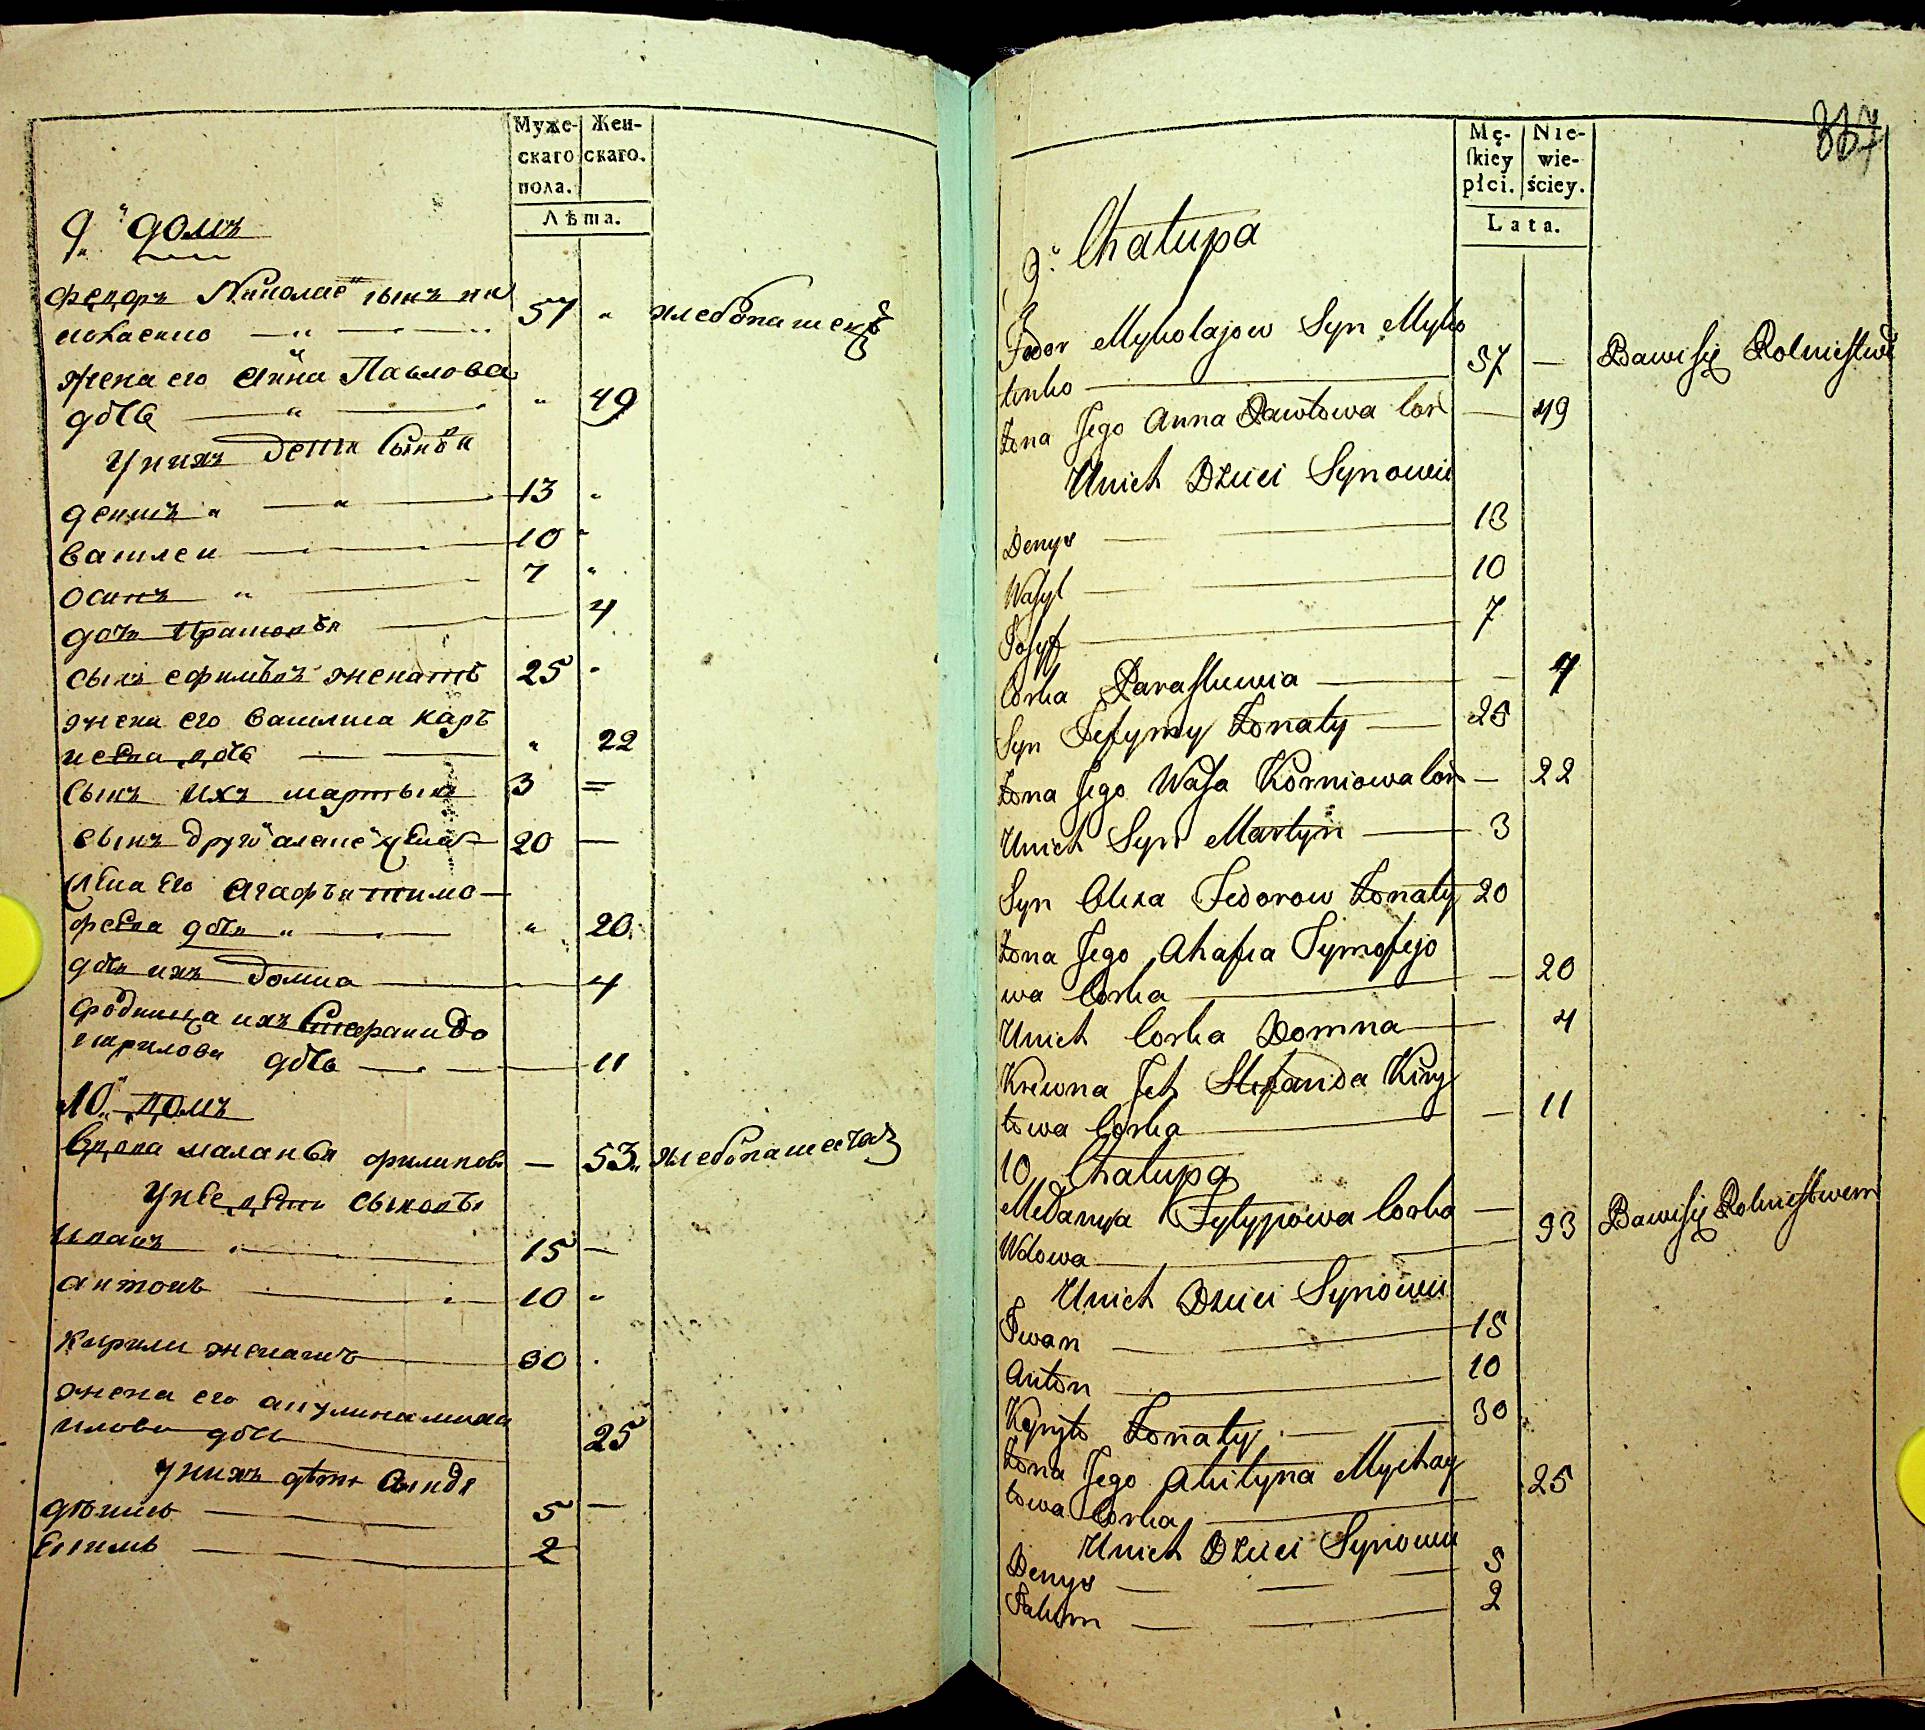 Муже-
скаго
пола.
Жен-
скаго.
Лѣта.
9 домъ
Федоръ Николае сынъ ни
57 хлебопашен
жена его Анна Павлова
дочь 49
У нихъ дети сынов
денисъ 13
василеи 10
осипъ 7
дочь 4
сынъ ефимъ женатъ 25
жена его василиса кар
22
сынъ ихъ мартын 3
сынъ други алексе 20
его агафья тимо
фева дочь 20
дочь ихъ домна 4
ихъ Стефанида
кирилова дочь 11
10 домъ
вдова маланья филипов 53 хлебопашества
У нее дети сыновья
иванъ 15
антонъ 10
кирили женатъ 30
жена его акулина миха
илова дочь 25
у нихъ дети
денись 5
2
337
Mę-
ſkiey
płci.
Nie-
wie-
ściey.
Lata.
9 Chałupa
Fedor Mykołajow Syn Myko
57 — Bawi się Rolnictwe
Żona Jego Anna Pawłowa Cor — 49
Unich Dzieci Synowie
Denys 13
Wasyl 10
Josyf 7
Corka Paraskiewia 4
Syn Jefymy Żonaty 25
Żona Jego Wasa Korniowa Cor — 22
Unich Syn Martyn 3
Syn Olexa Fedorow Żonaty 20
Żona Jego Ahafia Tymofejo
wa Corka 20
Unich Corka Domna 4
Krewna Ich Stefanida Kiry
łowa Corka 11
10 Chałupa
Mełanya Fylypowa Corka —
Wdowa 53 Bawi się Rolnictwem
Unich Dzieci Synowie
Iwan 15
Anton 10
Kyryło Żonaty 30
Żona Jego Akulyna Mychay
łowa Corka 25
Unich Dzieci Synowie
Denys 5
2